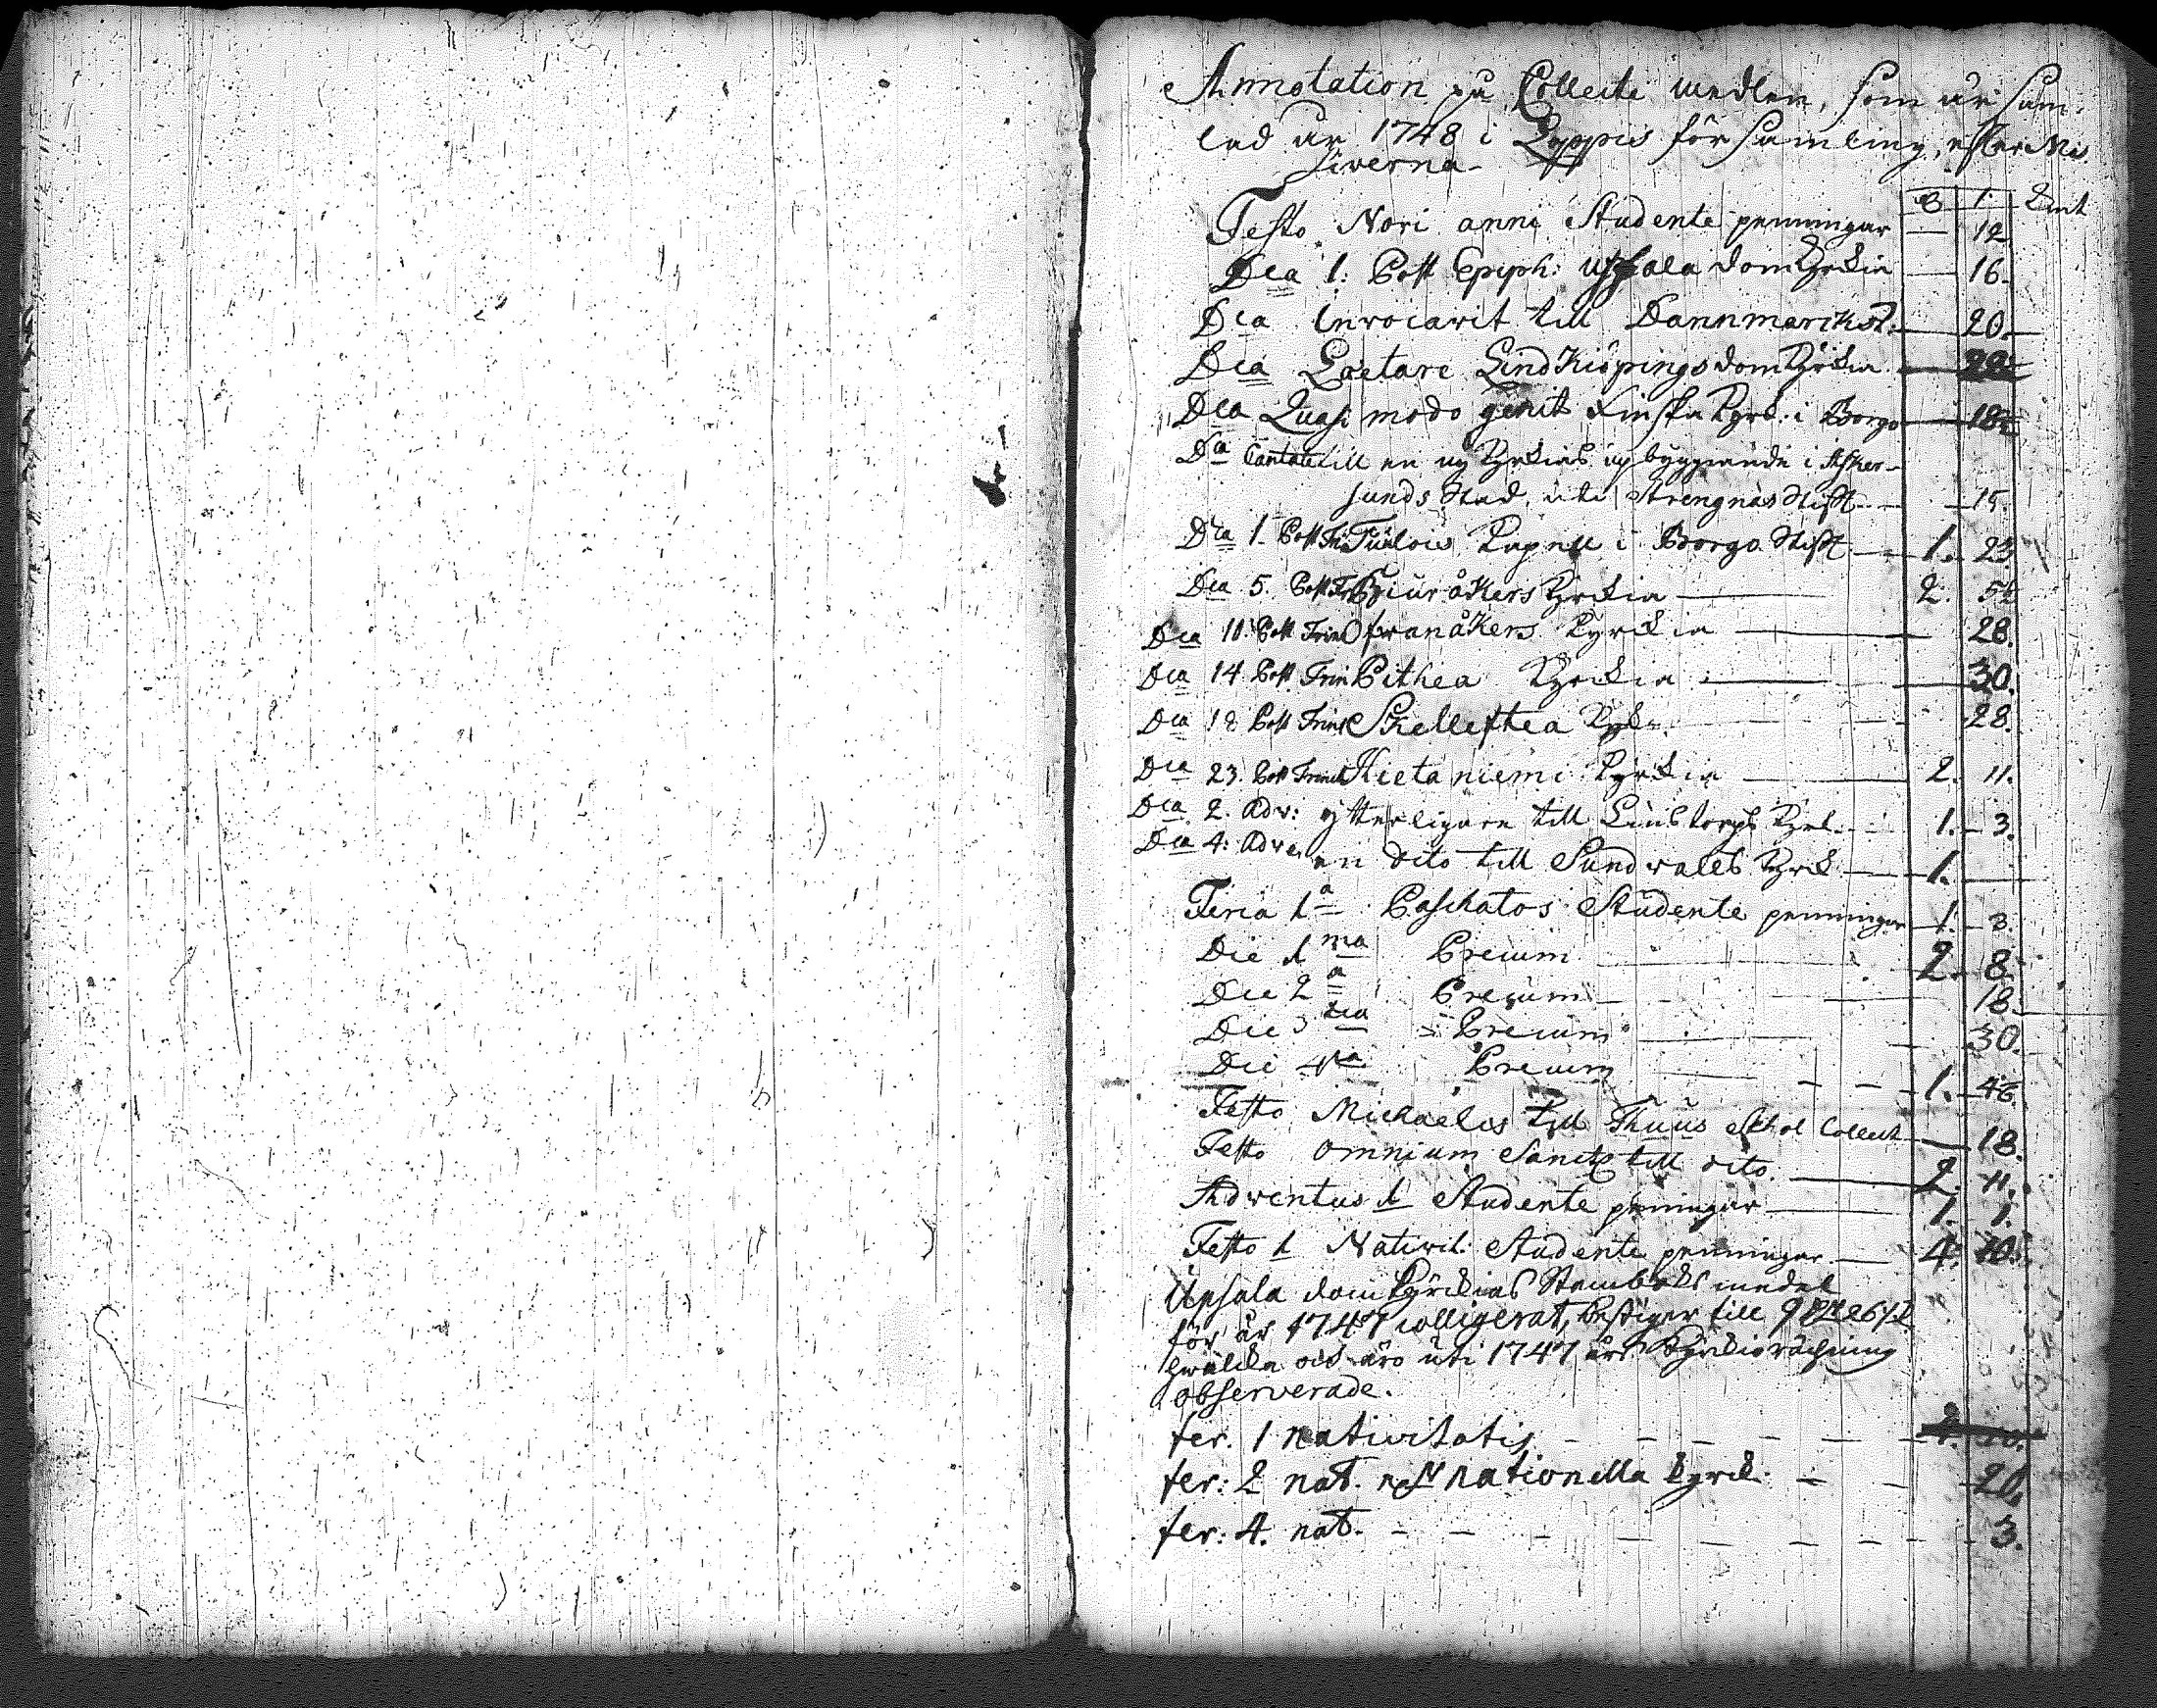 Annotation på Collecte medlen, som är sam-
lad år 1748 i Loppis församling, efter Mis
siverna.
1. Qut
Festo Novi anni Studente penningar 12
Dca 1. Post Epiph: Upsala domkyrckia 16.
Dca Invocavit till Dannmarks k. 20.
Dca Laetare Lindkiöpings domkyrkia
Dca Quasi modo genit Finska kyrk: i Borgo
Dca Cantate till en ny kyrkias upbyggande i Asker-
sunds stad, uti Strengnäs stift 15.
Dca 1. Post Tri Tuulois Capell i Borgo stift 1. 23
Dca 5. Post Tri Biuråkers kyrckia 2. 5½
Dca 11. Post Trin Ofwanåkers kyrckia 28.
Dca 14 Post Trin Pithea kyrckia 30.
Dca 18 Post Trinit Skelleftea kyrk. 28.
Dca 23. Post Trinit Hietaniemi kyrckia 2. 11.
Dca 2. Adv: ytterligare till kyrk. 1. 3.
Dca 4: Adve. en dito till Sundwalls kyrck 1.
Feria 1a Paschatos Studente penningar 1. 3.
Die 1ma Precum 2. 8.
Die 2a Precum 18.
Die 3tia Precum 30.
Die 4ta Precum 1. 46.
Festo Michaelis till Schol Collect 18.
Festo omnium Sanct till dito. 2. 11.
Adventus 1 Studente penningar 1. 1.
Festo 1 Nativit: Studente penningar 4. 10.
Upsala domkyrckias Stambocks medel
för år 1747 colligerat, bestiger till 9
hwilcka ock äro uti 1747 års kyrckioräckning
observerade.
fer. 1 nativitatis
fer: 2 nat. nationella kyrck 20.
fer: 4. nat. 3.